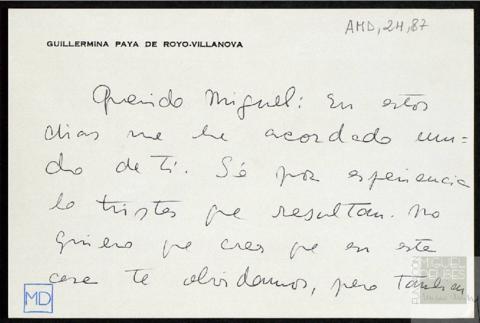 AMD, 24, 87
GUILLERMINA PAYA DE ROYO-VILLANOVA
Querido Miguel: En estos
dias me he acordado mu=
cho de ti. Sé por esperiencia
lo tristes que resultan. No
quiero que creas que en esta
casa te olvidamos, pero tambien
MD
FUNDACIÓN
MIGUEL
DELIBES